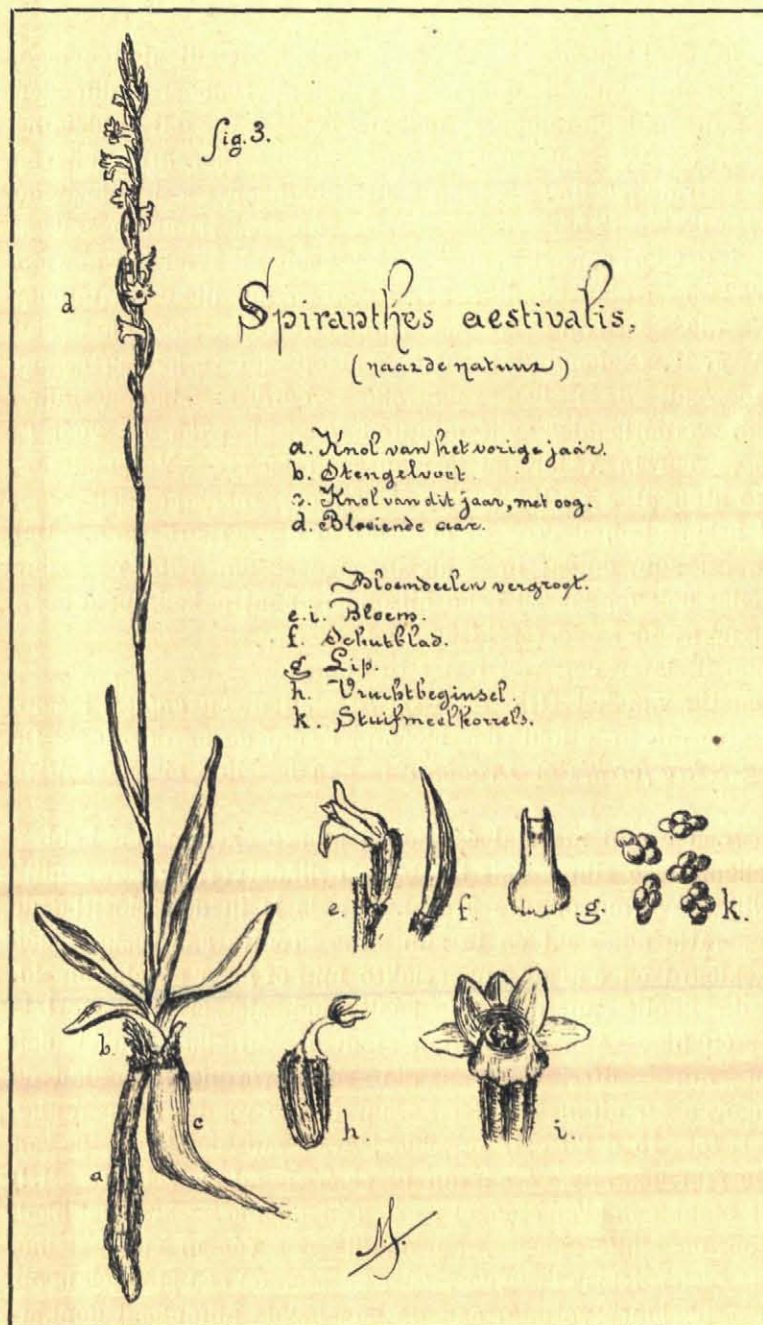 fig. 3.
d
Spiranthes aestivalis,
(naar de natuur)
a. Knol van het vorige jaar.
b. Stengelvoet
c. Knol van dit jaar, met oog.
d. Bloeiende aar.
Bloemdeelen vergroot.
e.i. Bloem.
f. Schutblad.
g Lip.
h. Vruchtbeginsel.
k. Stuifmeelkorrels.
e. f. g. k.
b.
h. i.
c
a